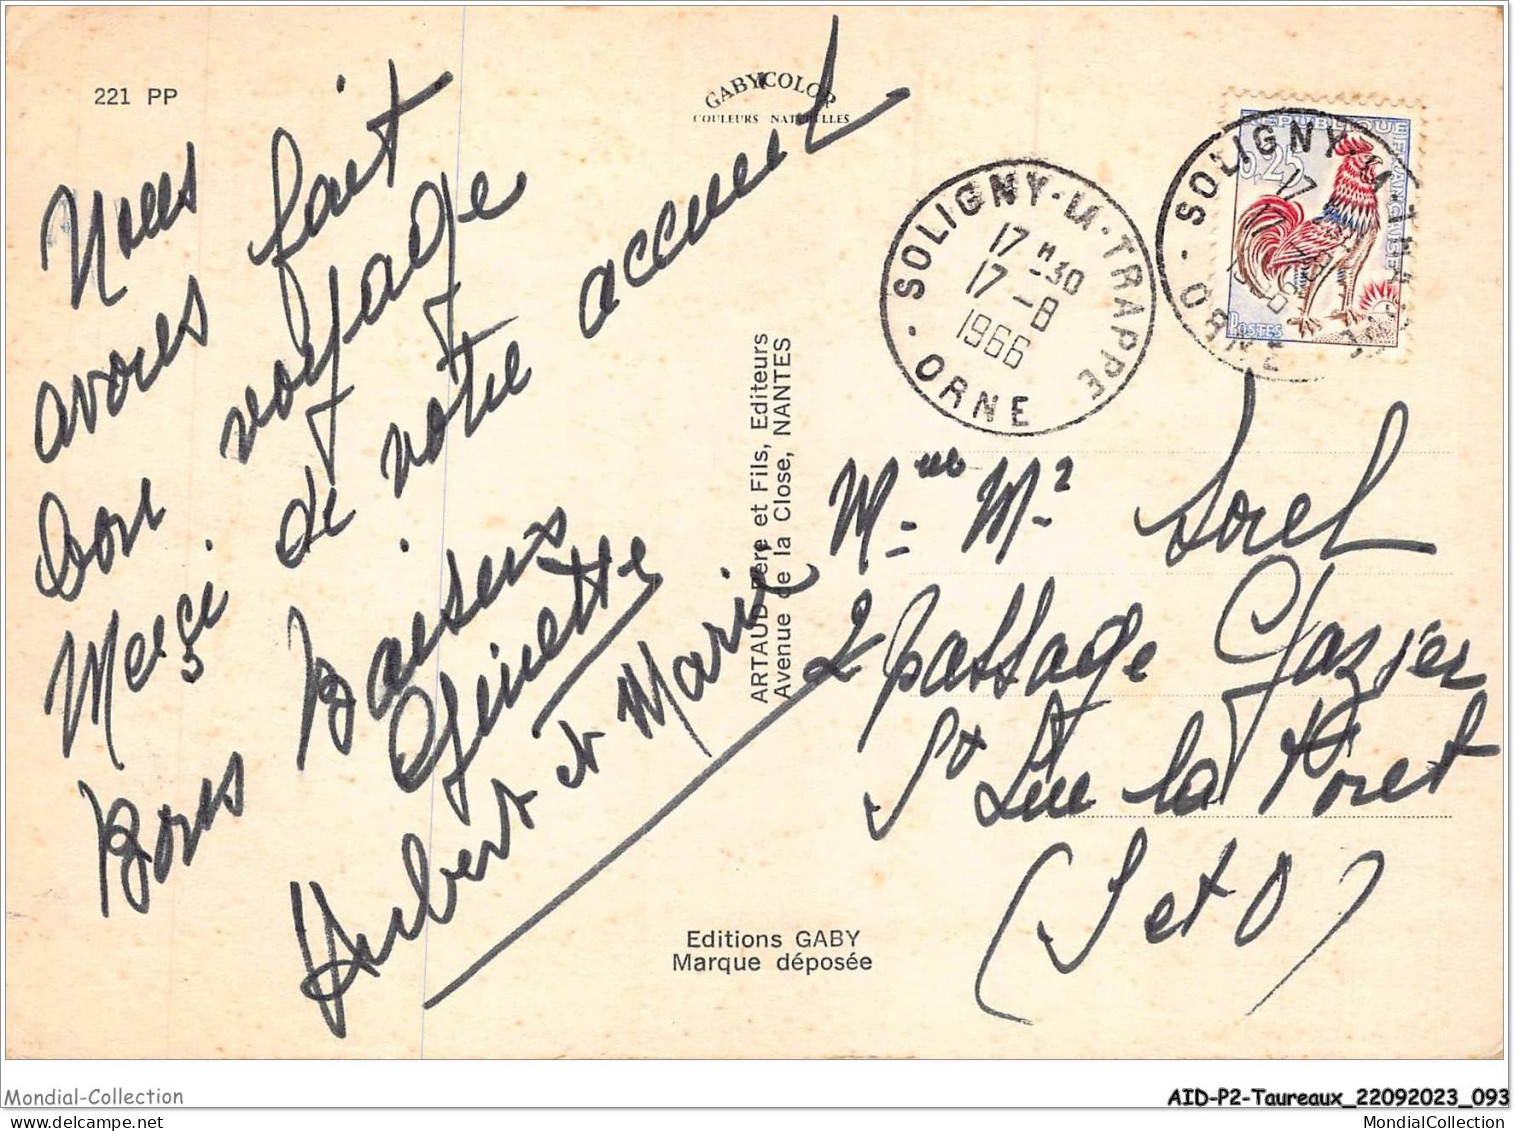 221 PP
GABYCOLOR
COULEURS NATURELLES
Nous
avons fait
bon voyage
Merçi de votre accueil
Bons Baisers
Ginette
Hubert et Marie
ARTAUD Père et Fils, Editeurs
Avenue de la Close, NANTES
Editions GABY
Marque déposée
SOLIGNY-LA-TRAPPE
17 H 30
17 - 8
1966
- ORNE -
SOLIGNY-LA-TRAPPE
17
17 - 8
ORNE
REPUBLIQUE FRANÇAISE
0,25
POSTES
Mme Mr Sorel
2 passage Gazier
St Leu la Foret
(S et O)
Mondial-Collection
AID-P2-Taureaux_22092023_093
MondialCollection